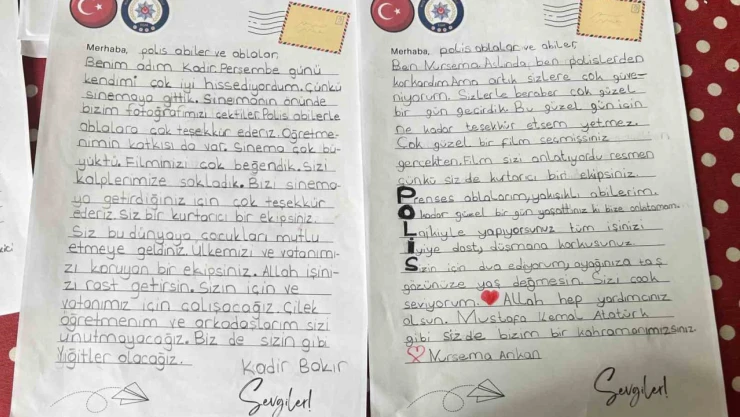 Merhaba, polis abiler ve ablalar,
Benim adım Kadir. Perşembe günü
kendimi çok iyi hissediyordum. Çünkü
sinemaya gittik. Sinemanın önünde
bizim fotoğrafımızı çektiler. Polis abilerle
ablalara çok teşekkür ederiz. Öğretme-
nimin katkısı da var. Sinema çok bü-
yüktü. Filminizi çok beğendik. Sizi
kalplerimize sakladık. Bizi sinema-
ya getirdiğiniz için çok teşekkür
ederiz. Siz bir kurtarıcı bir ekipsiniz.
Siz bu dünyaya çocukları mutlu
etmeye geldiniz. Ülkemizi ve vatanımı-
zı koruyan bir ekipsiniz. Allah işini-
zi rast getirsin. Sizin için ve
vatanımız için çalışacağız. Çilek
öğretmenim ve arkadaşlarım sizi
unutmayacağız. Biz de sizin gibi
yiğitler olacağız.
Kadir Bakır
Sevgiler!
Merhaba, polis ablalar ve abiler,
Ben Nursema. Aslında, ben polislerden
korkardım. Ama artık sizlere çok güve-
niyorum. Sizlerle beraber çok güzel
bir gün geçirdik. Bu güzel gün için
ne kadar teşekkür etsem yetmez.
Çok güzel bir film seçmişsiniz
gerçekten. Film sizi anlatıyordu resmen
çünkü siz de kurtarıcı biri ekipsiniz.
Prenses ablalarım, yakışıklı abilerim.
O kadar güzel bir gün yaşattınız ki bize anlatamam.
Layikiyle yapıyorsunuz tüm işinizi
İyiye dost, düşmana korkusunuz.
Sizin için dua ediyorum, ayağınıza taş
gözünüze yaş değmesin. Sizi çook
seviyorum. Allah hep yardımcınız
olsun. Mustafa Kemal Atatürk
gibi siz de bizim bir kahramanımızsınız.
Nursema Arıkan
Sevgiler!